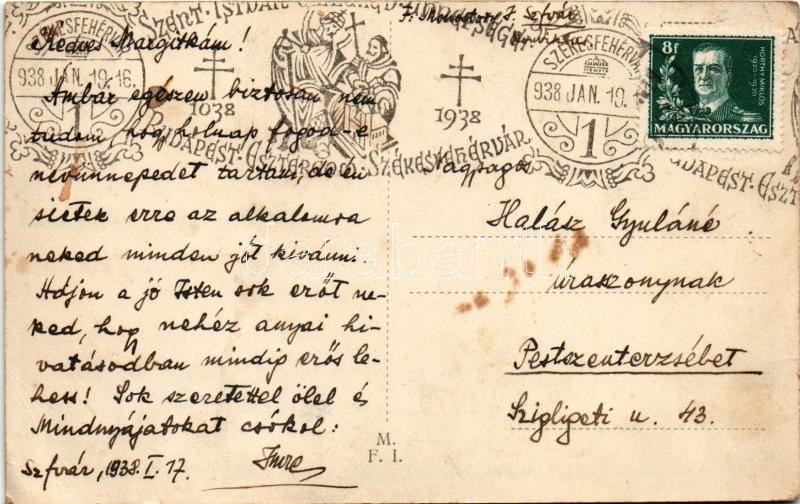 SZENT ISTVÁN
Kedves Margitkám!
SZÉKESFEHÉRVÁR
938 JAN. 19. 16
1
1038
Ámbár egészen biztosan nem
tudom hogy holnap fogod-e
nevünnepedet tartani, de én
sietek erre az alkalomra
neked minden jót kivánni.
Adjon a jó Isten sok erőt ne-
ked, hogy nehéz anyai hi-
vatásodban mindig erős le-
hess! Sok szeretettel ölel és
Mindnyájatokat csókol:
Imre
Szfvár, 1938. I. 17.
BUDAPEST. ESZTERGOM. SZÉKESFEHÉRVÁR
1938
SZÉKESFEHÉRVÁR
938 JAN. 19.
1
BUDAPEST. ESZT
8f
HORTHY MIKLÓS
1920-1930
MAGYARORSZÁG
Szfvár
Nagyságos
Halász Gyuláné
úraszonynak
Pestszenterzsébet
Szigligeti u. 43.
M.
F. I.
darabanth